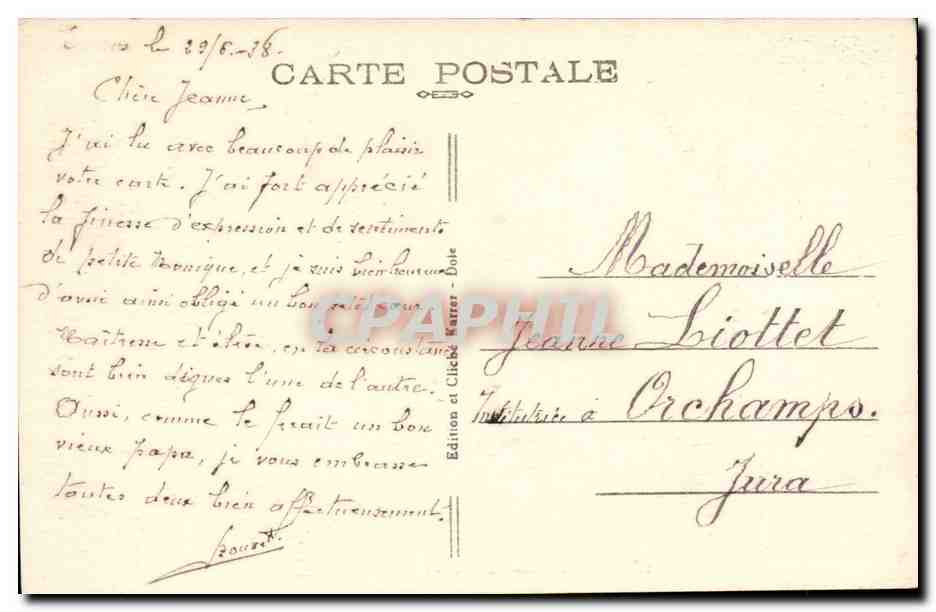 le 29/6-38.
CARTE POSTALE
Chère Jeanne,
J'ai lu avec beaucoup de plaisir
votre carte. J'ai fort apprécié
la finesse d'expression et de sentiments
de petite Monique, et je suis bien heureux
d'avoir ainsi obligé un bon petit cœur.
Maîtresse et élève, en la circonstance
sont bien dignes l'une de l'autre.
Aussi, comme le ferait un bon
vieux papa, je vous embrasse
toutes deux bien affectueusement.
Edition et Cliché Karrer - Dole
Mademoiselle
Jeanne Liottet
Institutrice à Orchamps.
Jura
CPAPHIL